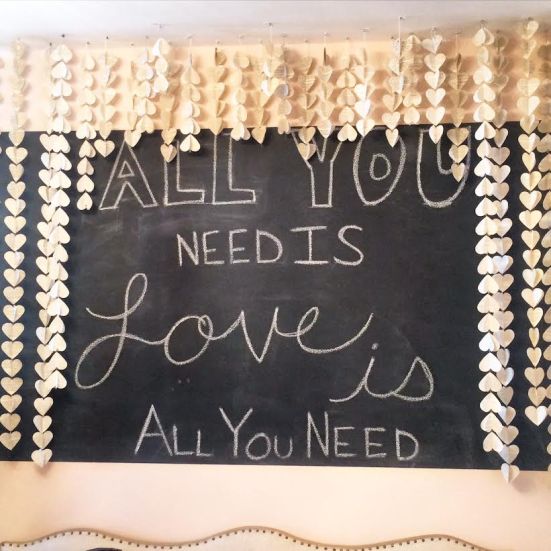 ALL YOU
NEED IS
Love is
ALL YOU NEED